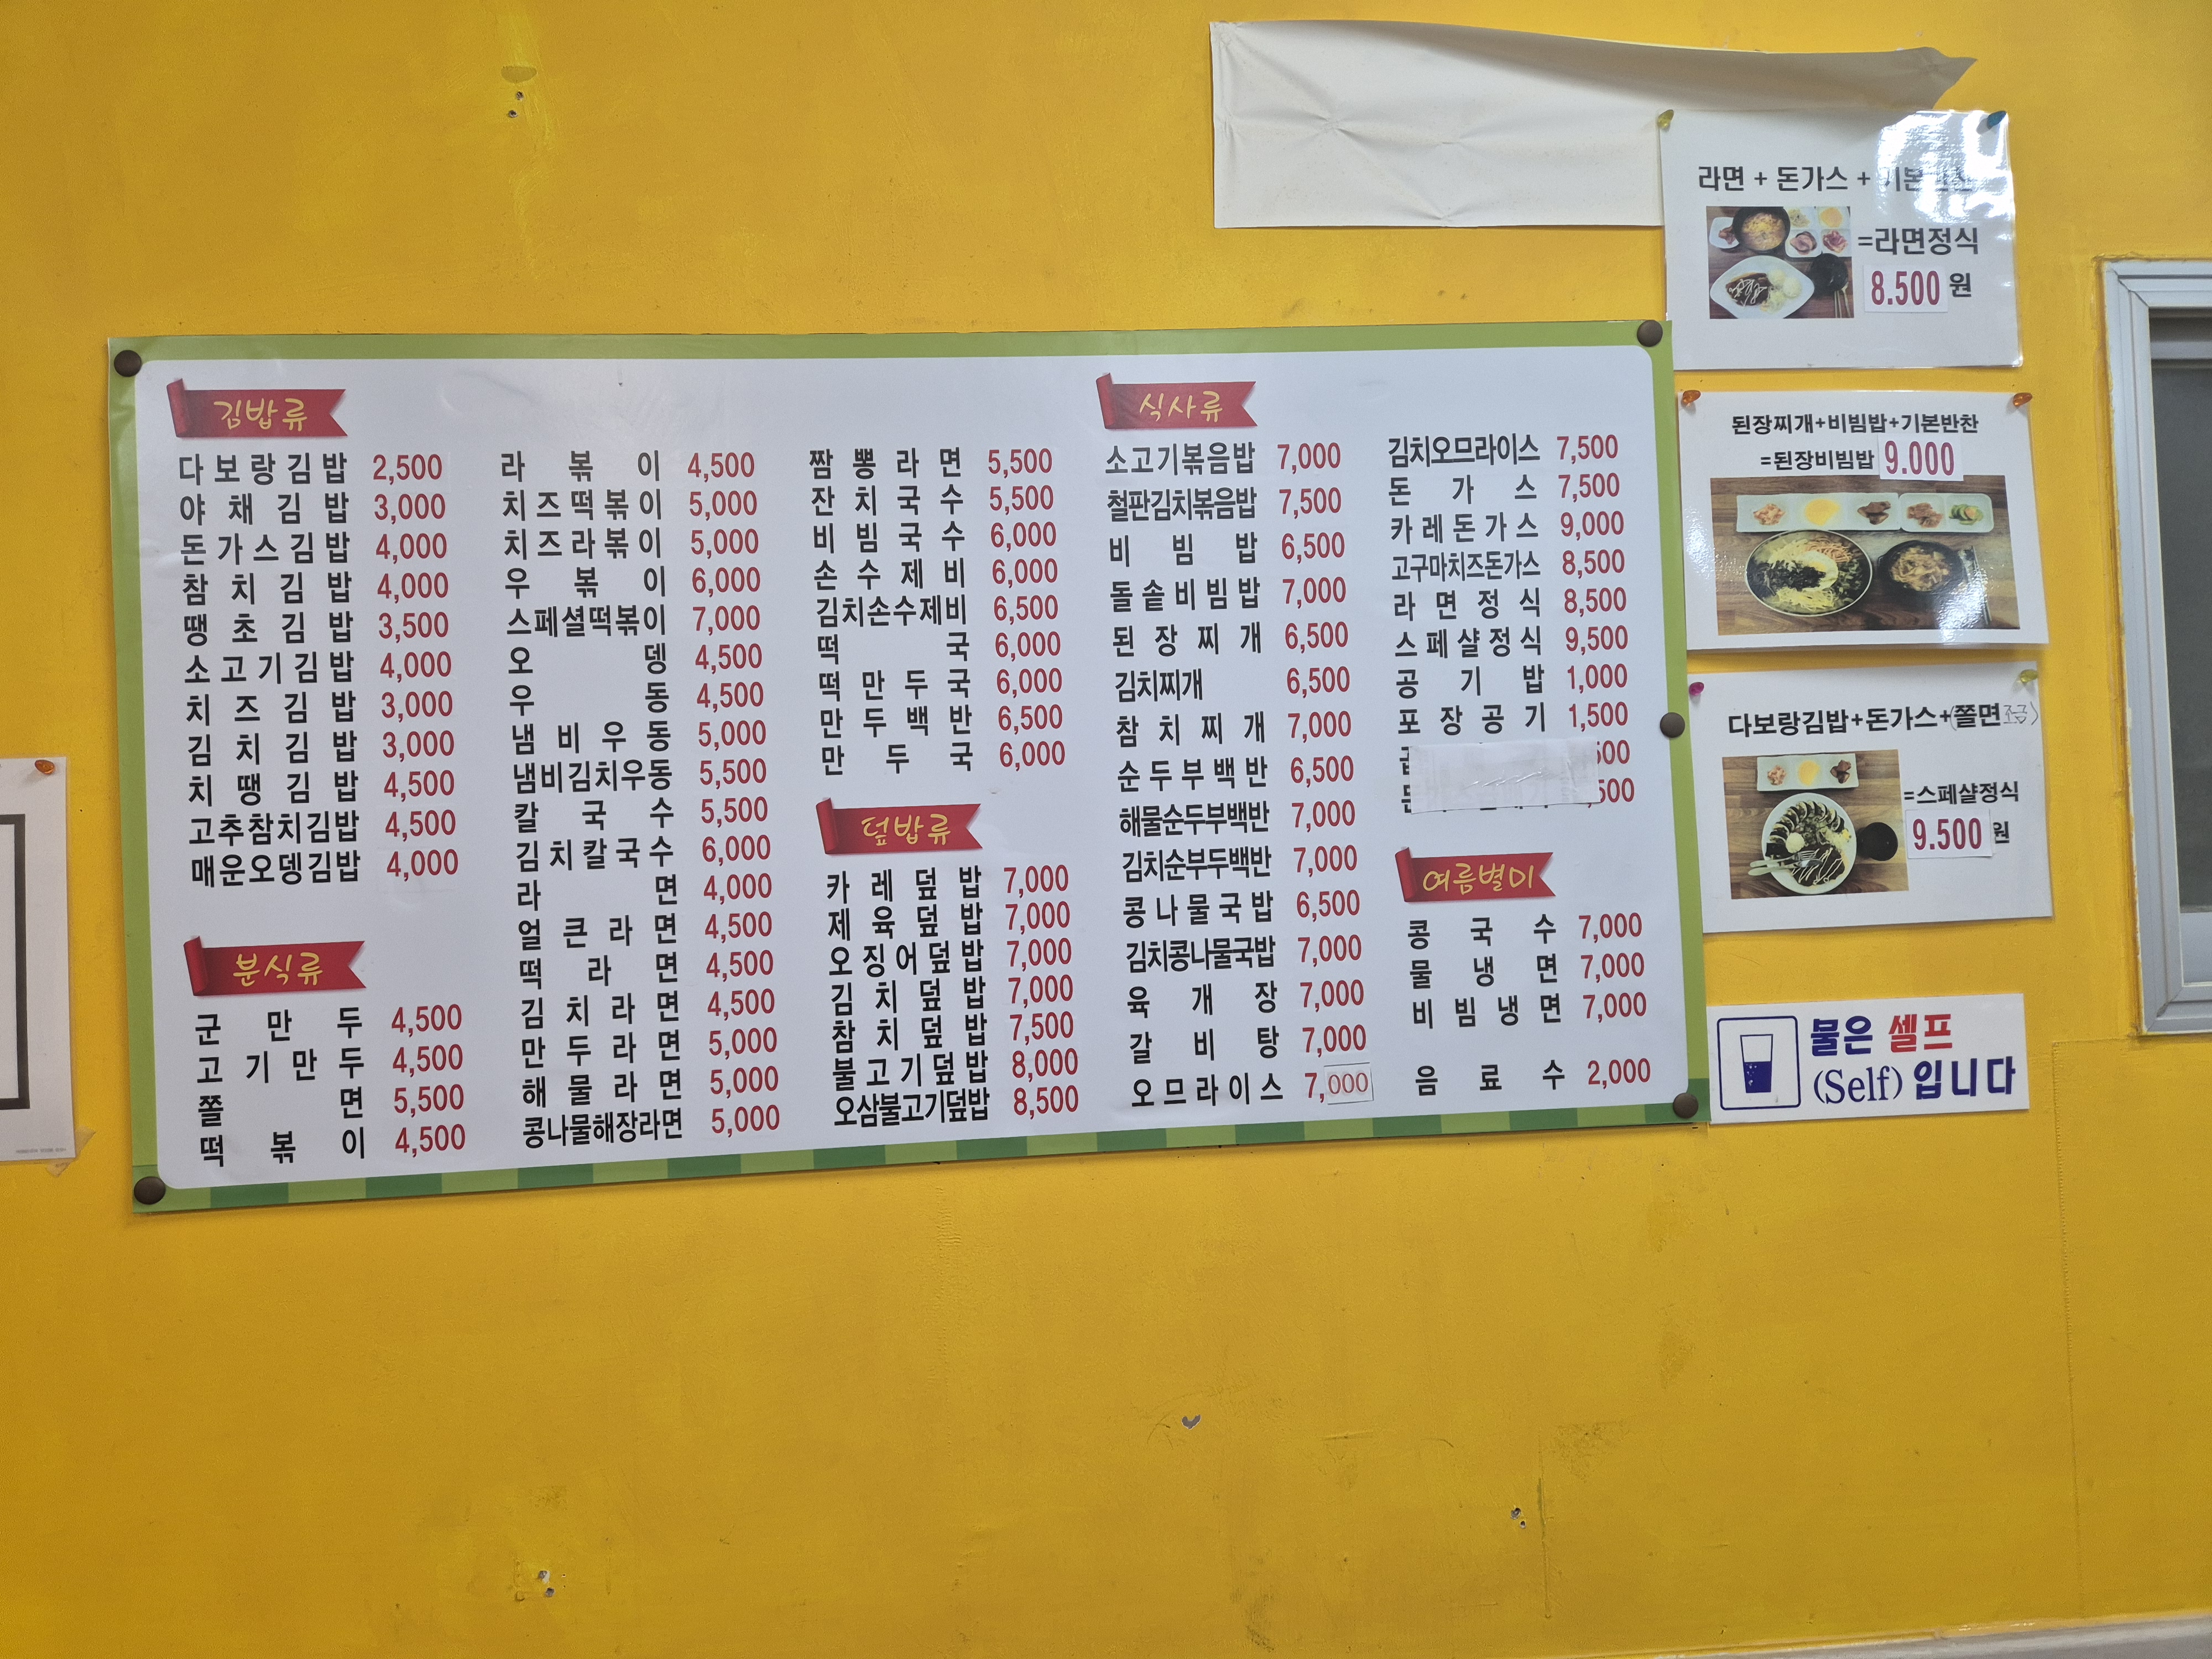 김밥류
다보랑김밥 2,500
야채김밥 3,000
돈가스김밥 4,000
참치김밥 4,000
땡초김밥 3,500
소고기김밥 4,000
치즈김밥 3,000
김치김밥 3,000
치땡김밥 4,500
고추참치김밥 4,500
매운오뎅김밥 4,000
분식류
군만두 4,500
고기만두 4,500
쫄면 5,500
떡볶이 4,500
라볶이 4,500
치즈떡볶이 5,000
치즈라볶이 5,000
우볶이 6,000
스페셜떡볶이 7,000
오뎅 4,500
우동 4,500
냄비우동 5,000
냄비김치우동 5,500
칼국수 5,500
김치칼국수 6,000
라면 4,000
얼큰라면 4,500
떡라면 4,500
김치라면 4,500
만두라면 5,000
해물라면 5,000
콩나물해장라면 5,000
짬뽕라면 5,500
잔치국수 5,500
비빔국수 6,000
손수제비 6,000
김치손수제비 6,500
떡국 6,000
떡만두국 6,000
만두백반 6,500
만두국 6,000
덮밥류
카레덮밥 7,000
제육덮밥 7,000
오징어덮밥 7,000
김치덮밥 7,000
참치덮밥 7,500
불고기덮밥 8,000
오삼불고기덮밥 8,500
식사류
소고기볶음밥 7,000
철판김치볶음밥 7,500
비빔밥 6,500
돌솥비빔밥 7,000
된장찌개 6,500
김치찌개 6,500
참치찌개 7,000
순두부백반 6,500
해물순두부백반 7,000
김치순부두백반 7,000
콩나물국밥 6,500
김치콩나물국밥 7,000
육개장 7,000
갈비탕 7,000
오므라이스 7,000
김치오므라이스 7,500
돈가스 7,500
카레돈가스 9,000
고구마치즈돈가스 8,500
라면정식 8,500
스페샬정식 9,500
공기밥 1,000
포장공기 1,500
여름별미
콩국수 7,000
물냉면 7,000
비빔냉면 7,000
음료수 2,000
라면 + 돈가스 + 기본반찬
=라면정식
8.500 원
된장찌개+비빔밥+기본반찬
=된장비빔밥 9.000
다보랑김밥+돈가스+(쫄면조금)
=스페샬정식
9.500 원
물은 셀프
(Self) 입니다